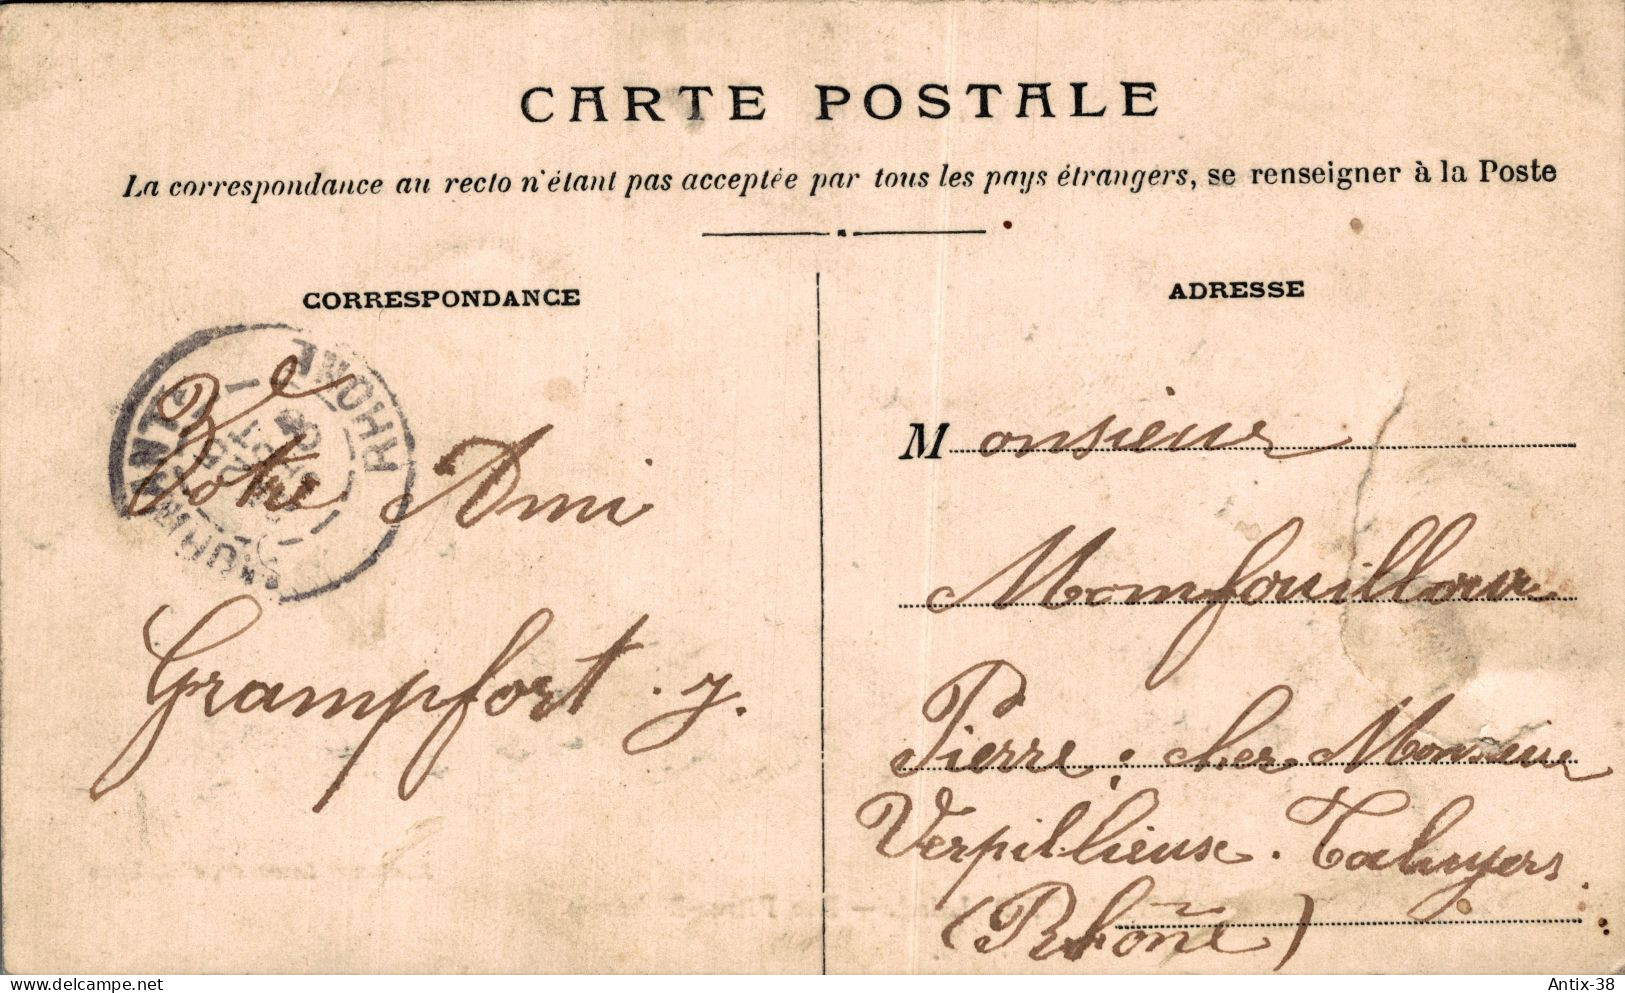 CARTE POSTALE
La correspondance au recto n'étant pas acceptée par tous les pays étrangers, se renseigner à la Poste
CORRESPONDANCE
Votre Ami
Grampfort. J.
ADRESSE
Monsieur
Momfouilloux
Pierre; cher Monsieur
Verpillieuse. Taluyers.
(Rhône)
RHONE
delcampe.net
Antix-38